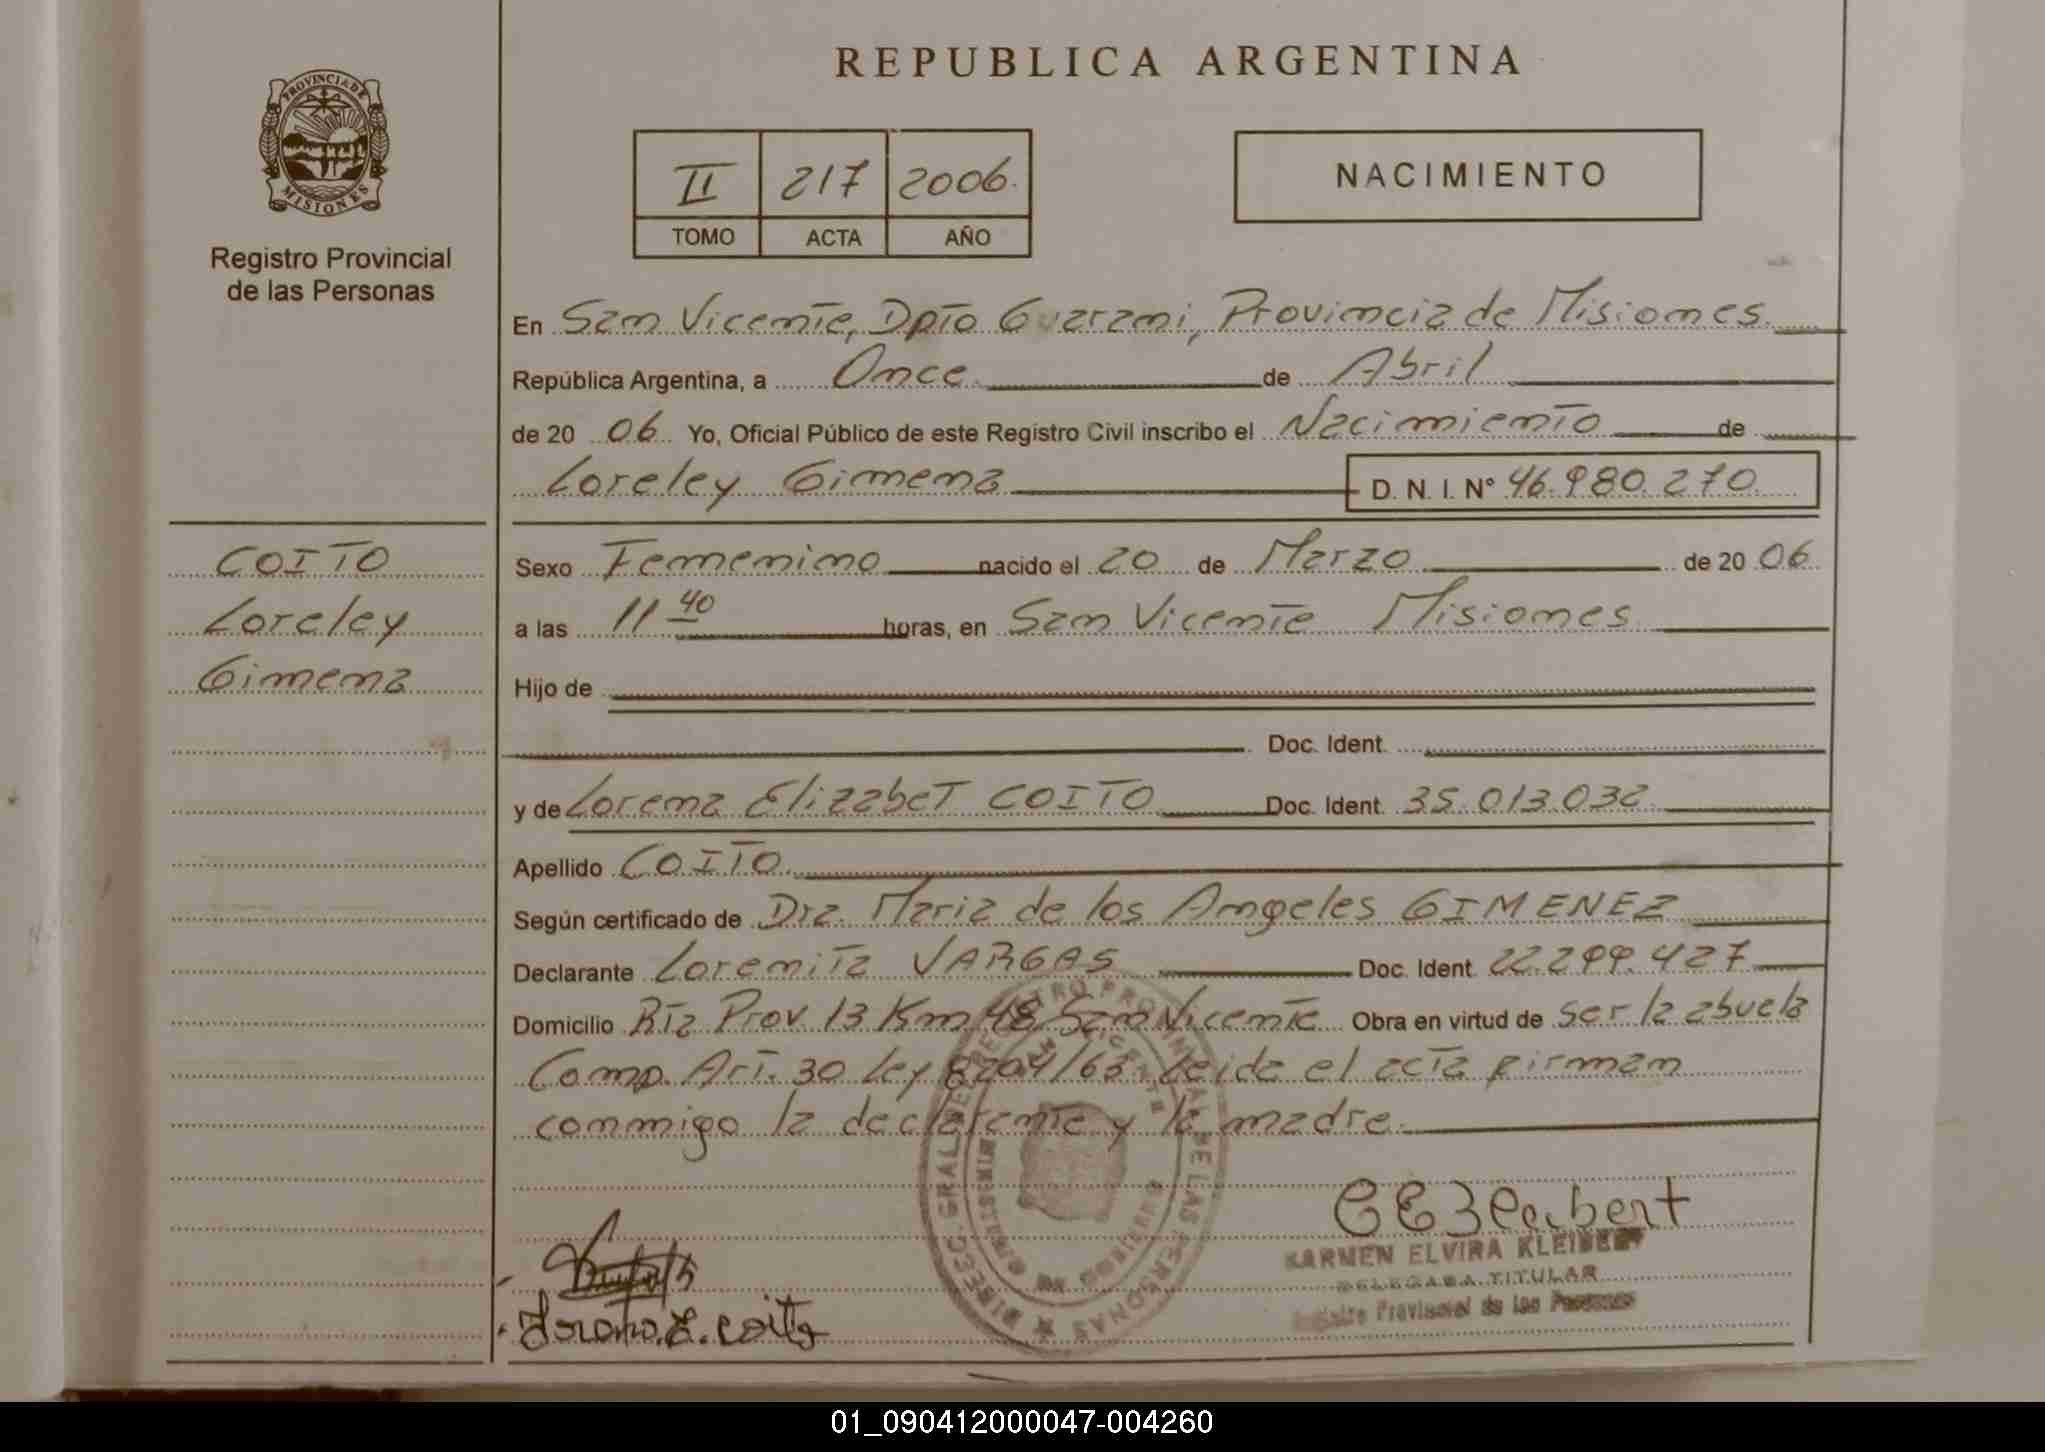 REPUBLICA ARGENTINA
PROVINCIA DE
MISIONES
Registro Provincial
de las Personas
II 217 2006.
TOMO ACTA AÑO
NACIMIENTO
En San Vicente, Dpto Guarani, Provincia de Misiones.
República Argentina, a Once de Abril
de 20 06 Yo, Oficial Público de este Registro Civil inscribo el Nacimiento de
Loreley Gimena D. N. I. N° 46.980.270
COITO
Loreley
Gimena
Sexo Femenino nacido el 20 de Marzo de 20 06
a las 11 40 horas, en San Vicente Misiones
Hijo de
Doc. Ident.
y de Lorena Elizabet COITO Doc. Ident. 35.013.032
Apellido COITO
Según certificado de Dra. Maria de los Angeles GIMENEZ
Declarante Lorenita VARGAS Doc. Ident. 22.299.427
Domicilio Rta Prov. 13 Km 48 San Vicente Obra en virtud de ser la abuela
Comp. Art. 30 Ley 8204/63. Leida el acta firman
conmigo la declarante y la madre.
KARMEN ELVIRA KLEIBERT
DELEGADA TITULAR
Registro Provincial de las Personas
DIRECC. GRAL. DE REGISTRO PROVINCIAL DE LAS PERSONAS
SAN VICENTE
MINISTERIO DE GOBIERNO
01_090412000047-004260